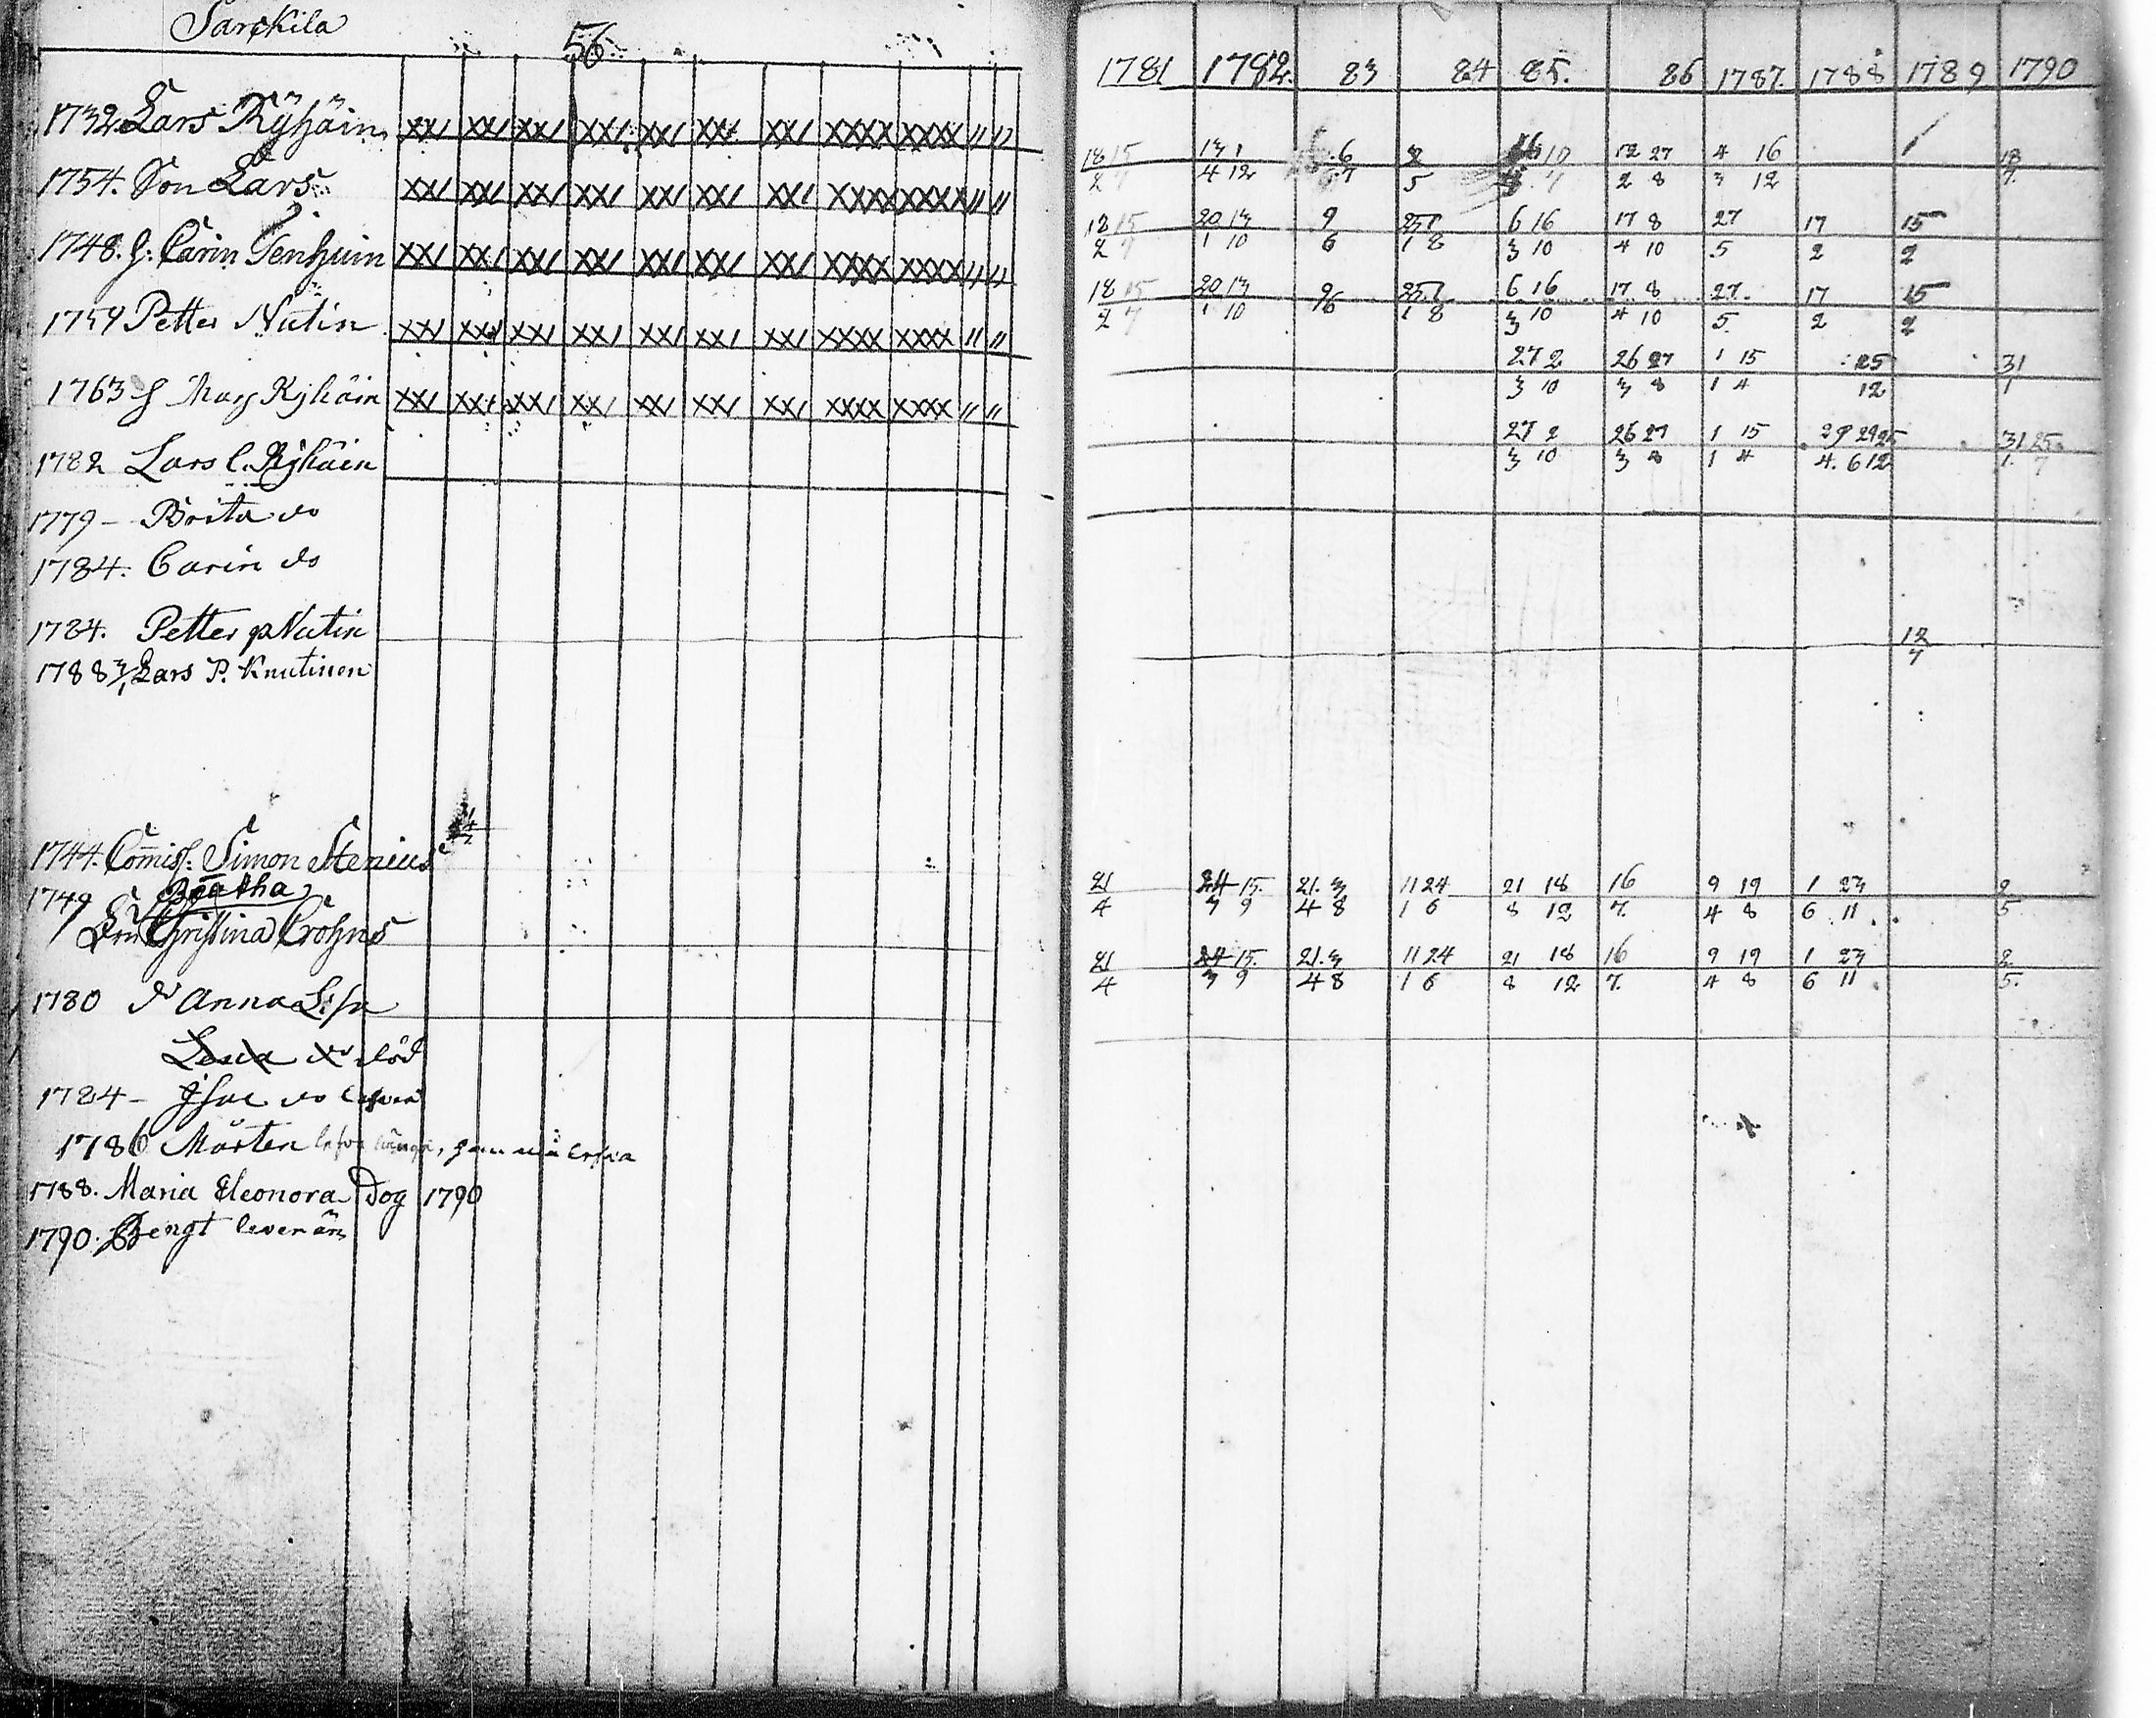 Särkila
56
1732 Lars Kÿhäin xx/ xx/ xx/ xx/ xx/ xx/ xx/ xxxx xxxx // //
1754. Son Lars xx/ xx/ xx/ xx/ xx/ xx/ xx/ xxxx xxxx // //
1748. H: Carin Tenhuin xx/ xx/ xx/ xx/ xx/ xx/ xx/ xxxx xxxx // //
1759 Petter Nutin xx/ xx/ xx/ xx/ xx/ xx/ xx/ xxxx xxxx // //
1763 H Marg Kyhäin xx/ xx/ xx/ xx/ xx/ xx/ xx/ xxxx xxxx // //
1782 Lars L. Kÿhäin
1779 - Brita do
1784. Carin do
1784. Petter p Nutin
1788 3/1 Lars P. Knutinen
1744. Comiss: Simon Stenius
1749 Beatha
Fru Christina Crohns
1780 Dr Anna Lisa
död
1784 - do
1786 Mårten
1788. Maria Eleonora Dog 1790
1790. Bengt lever än
1781 1782. 83 84 85. 86 1787. 1788 1789 1790
18 15 13 1 6 12 27 4 16 18
2 7 4 12 7 5 7 2 8 3 12 7
18 15 20 13 9 25 1 6 16 17 8 27 17 15
2 7 1 10 6 1 8 3 10 4 10 5 2 2
18 15 20 13 9 25 1 6 16 17 8 27. 17 15
2 7 1 10 6 1 8 3 10 4 10 5 2 2
27 2 26 27 1 15 25 31
3 10 3 8 1 4 12 1
27 2 26 27 1 15 29 29 25 31 25
3 10 3 8 1 4 4. 6 12 1. 7
12
7
21 24 15. 21. 3 11 24 21 18 16 9 19 1 23 2
4 3 9 4 8 1 6 8 12 7. 4 8 6 11 5
21 24 15. 21. 3 11 24 21 18 16 9 19 1 23 2
4 3 9 4 8 1 6 8 12 7. 4 8 6 11 5.